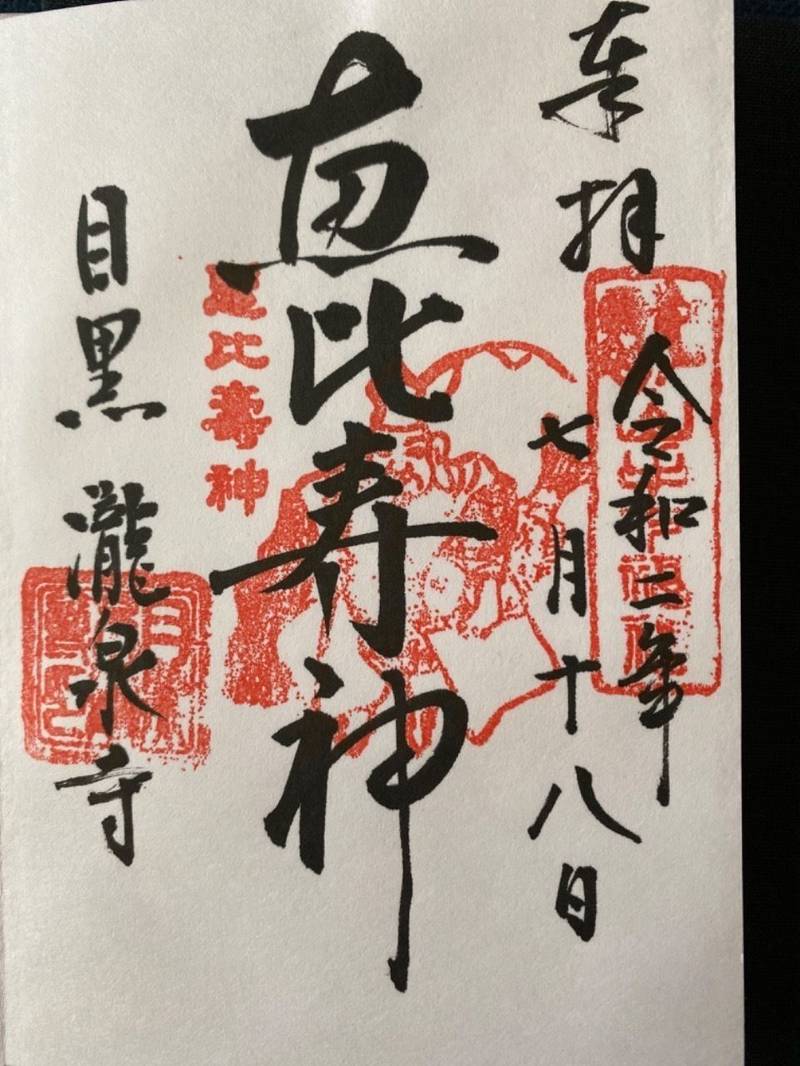 奉拝
令和二年
七月十八日
恵比寿神
恵比寿神
目黒 瀧泉寺